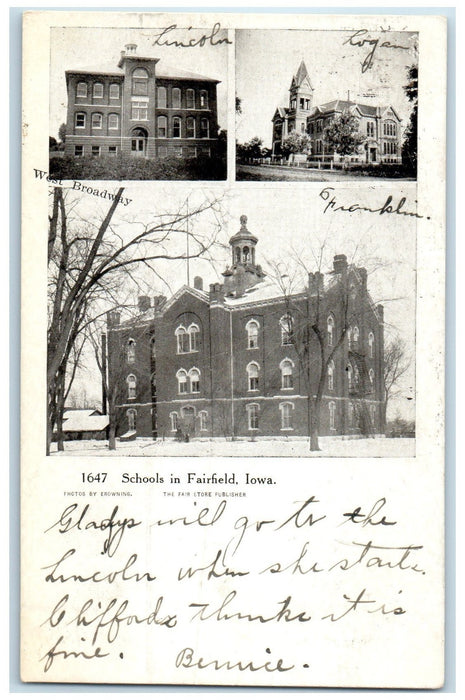 Lincoln
Logan
West Broadway
Franklin.
1647 Schools in Fairfield, Iowa.
PHOTOS BY BROWNING. THE FAIR STORE PUBLISHER
Gladys will go to the
Lincoln when she starts.
Clifford thinks it is
fine. Bernice.